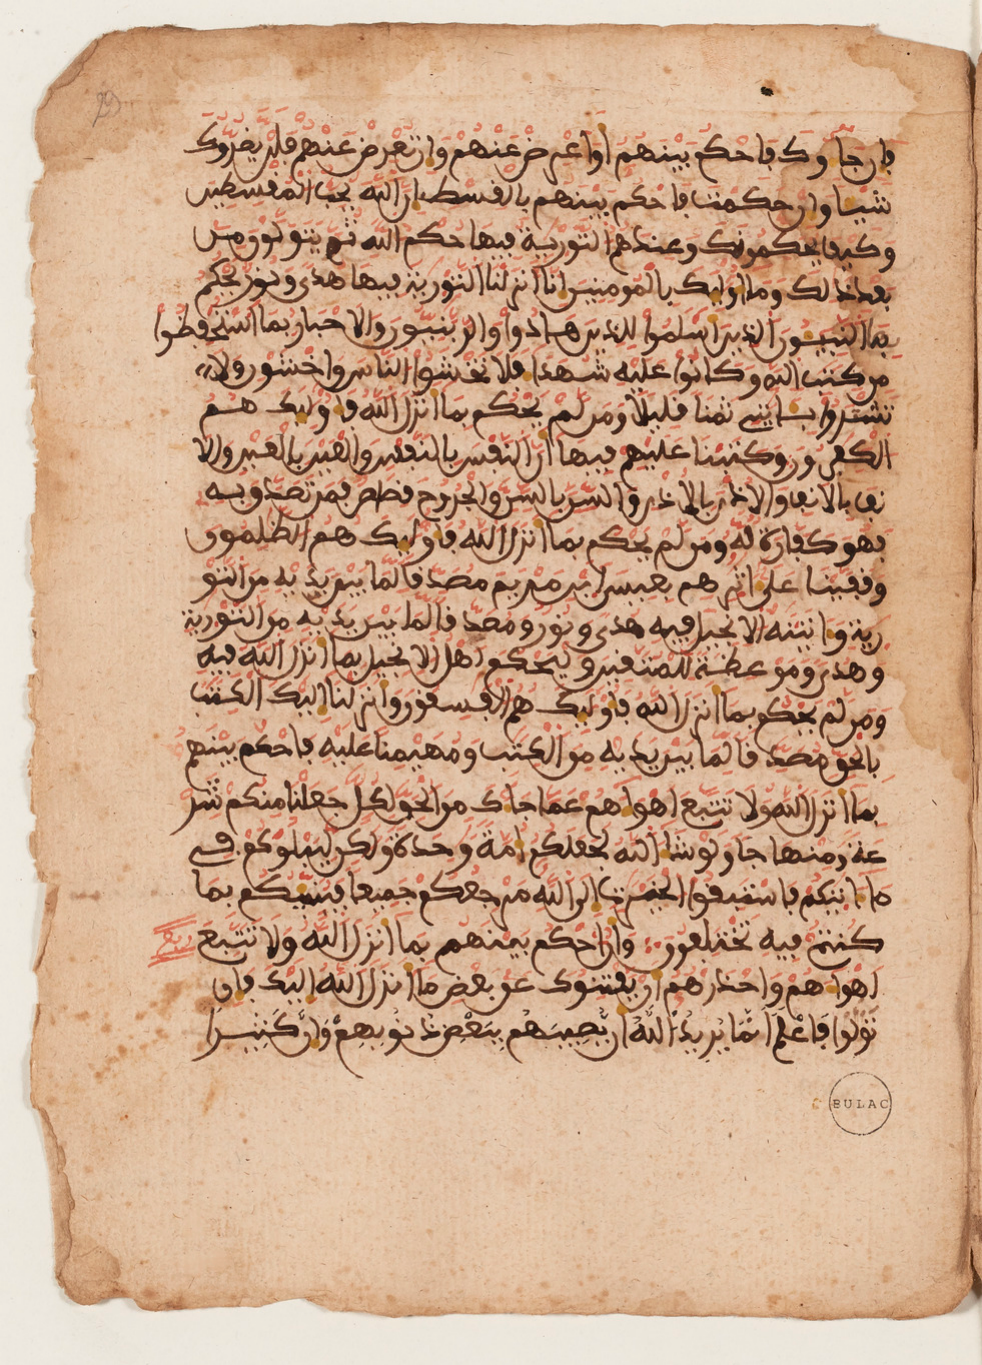 فان جاوك فاحكم بينهم او اعرض عنهم وان تعرض عنهم فلن يضروك
شيا وان حكمت فاحكم بينهم بالقسط ان الله يحب المقسطين
وكيف يحكمونك وعندهم التورية فيها حكم الله ثم يتولون من
بعد ذلك وما اوليك بالمومنين انا انزلنا التورية فيها هدى ونور يحكم
بها النبيون الذين اسلموا للذين هادوا والربنيون والاحبار بما استحفظوا
من كتب الله وكانوا عليه شهدا فلا تخشوا الناس واخشون ولا
تشتروا بايتي ثمنا قليلا ومن لم يحكم بما انزل الله فاوليك هم
الكفرون وكتبنا عليهم فيها ان النفس بالنفس والعين بالعين والا
نف بالانف والاذن بالاذن والسن بالسن والجروح قصاص فمن تصدق به
فهو كفارة له ومن لم يحكم بما انزل الله فاوليك هم الظلمون
وقفينا على اثرهم بعيسى ابن مريم مصدقا لما بين يديه من التو
رية واتينه الانجيل فيه هدى ونور ومصدقا لما بين يديه من التورية
وهدى وموعظة للمتقين وليحكم اهل الانجيل بما انزل الله فيه
ومن لم يحكم بما انزل الله فاوليك هم الفسقون وانزلنا اليك الكتب
بالحق مصدقا لما بين يديه من الكتب ومهيمنا عليه فاحكم بينهم
بما انزل الله ولا تتبع اهواهم عما جاك من الحق لكل جعلنا منكم شر
عة ومنهاجا ولو شا الله لجعلكم امة وحدة ولكن ليبلوكم في
ما اتيكم فاستبقوا الخيرت الى الله مرجعكم جميعا فينبيكم بما
كنتم فيه تختلفون وان احكم بينهم بما انزل الله ولا تتبع
ربع
اهواهم واحذرهم ان يفتنوك عن بعض ما انزل الله اليك فان
تولوا فاعلم انما يريد الله ان يصيبهم ببعض ذنوبهم وان كثيرا
BULAC